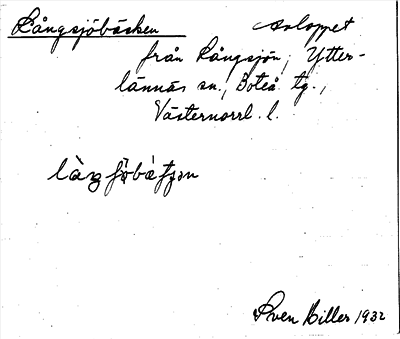 Långsjöbäcken avloppet
från Långsjön, Ytter-
lännäs sn., Boteå tg.,
Västernorrl. l.
Sven Hiller 1932